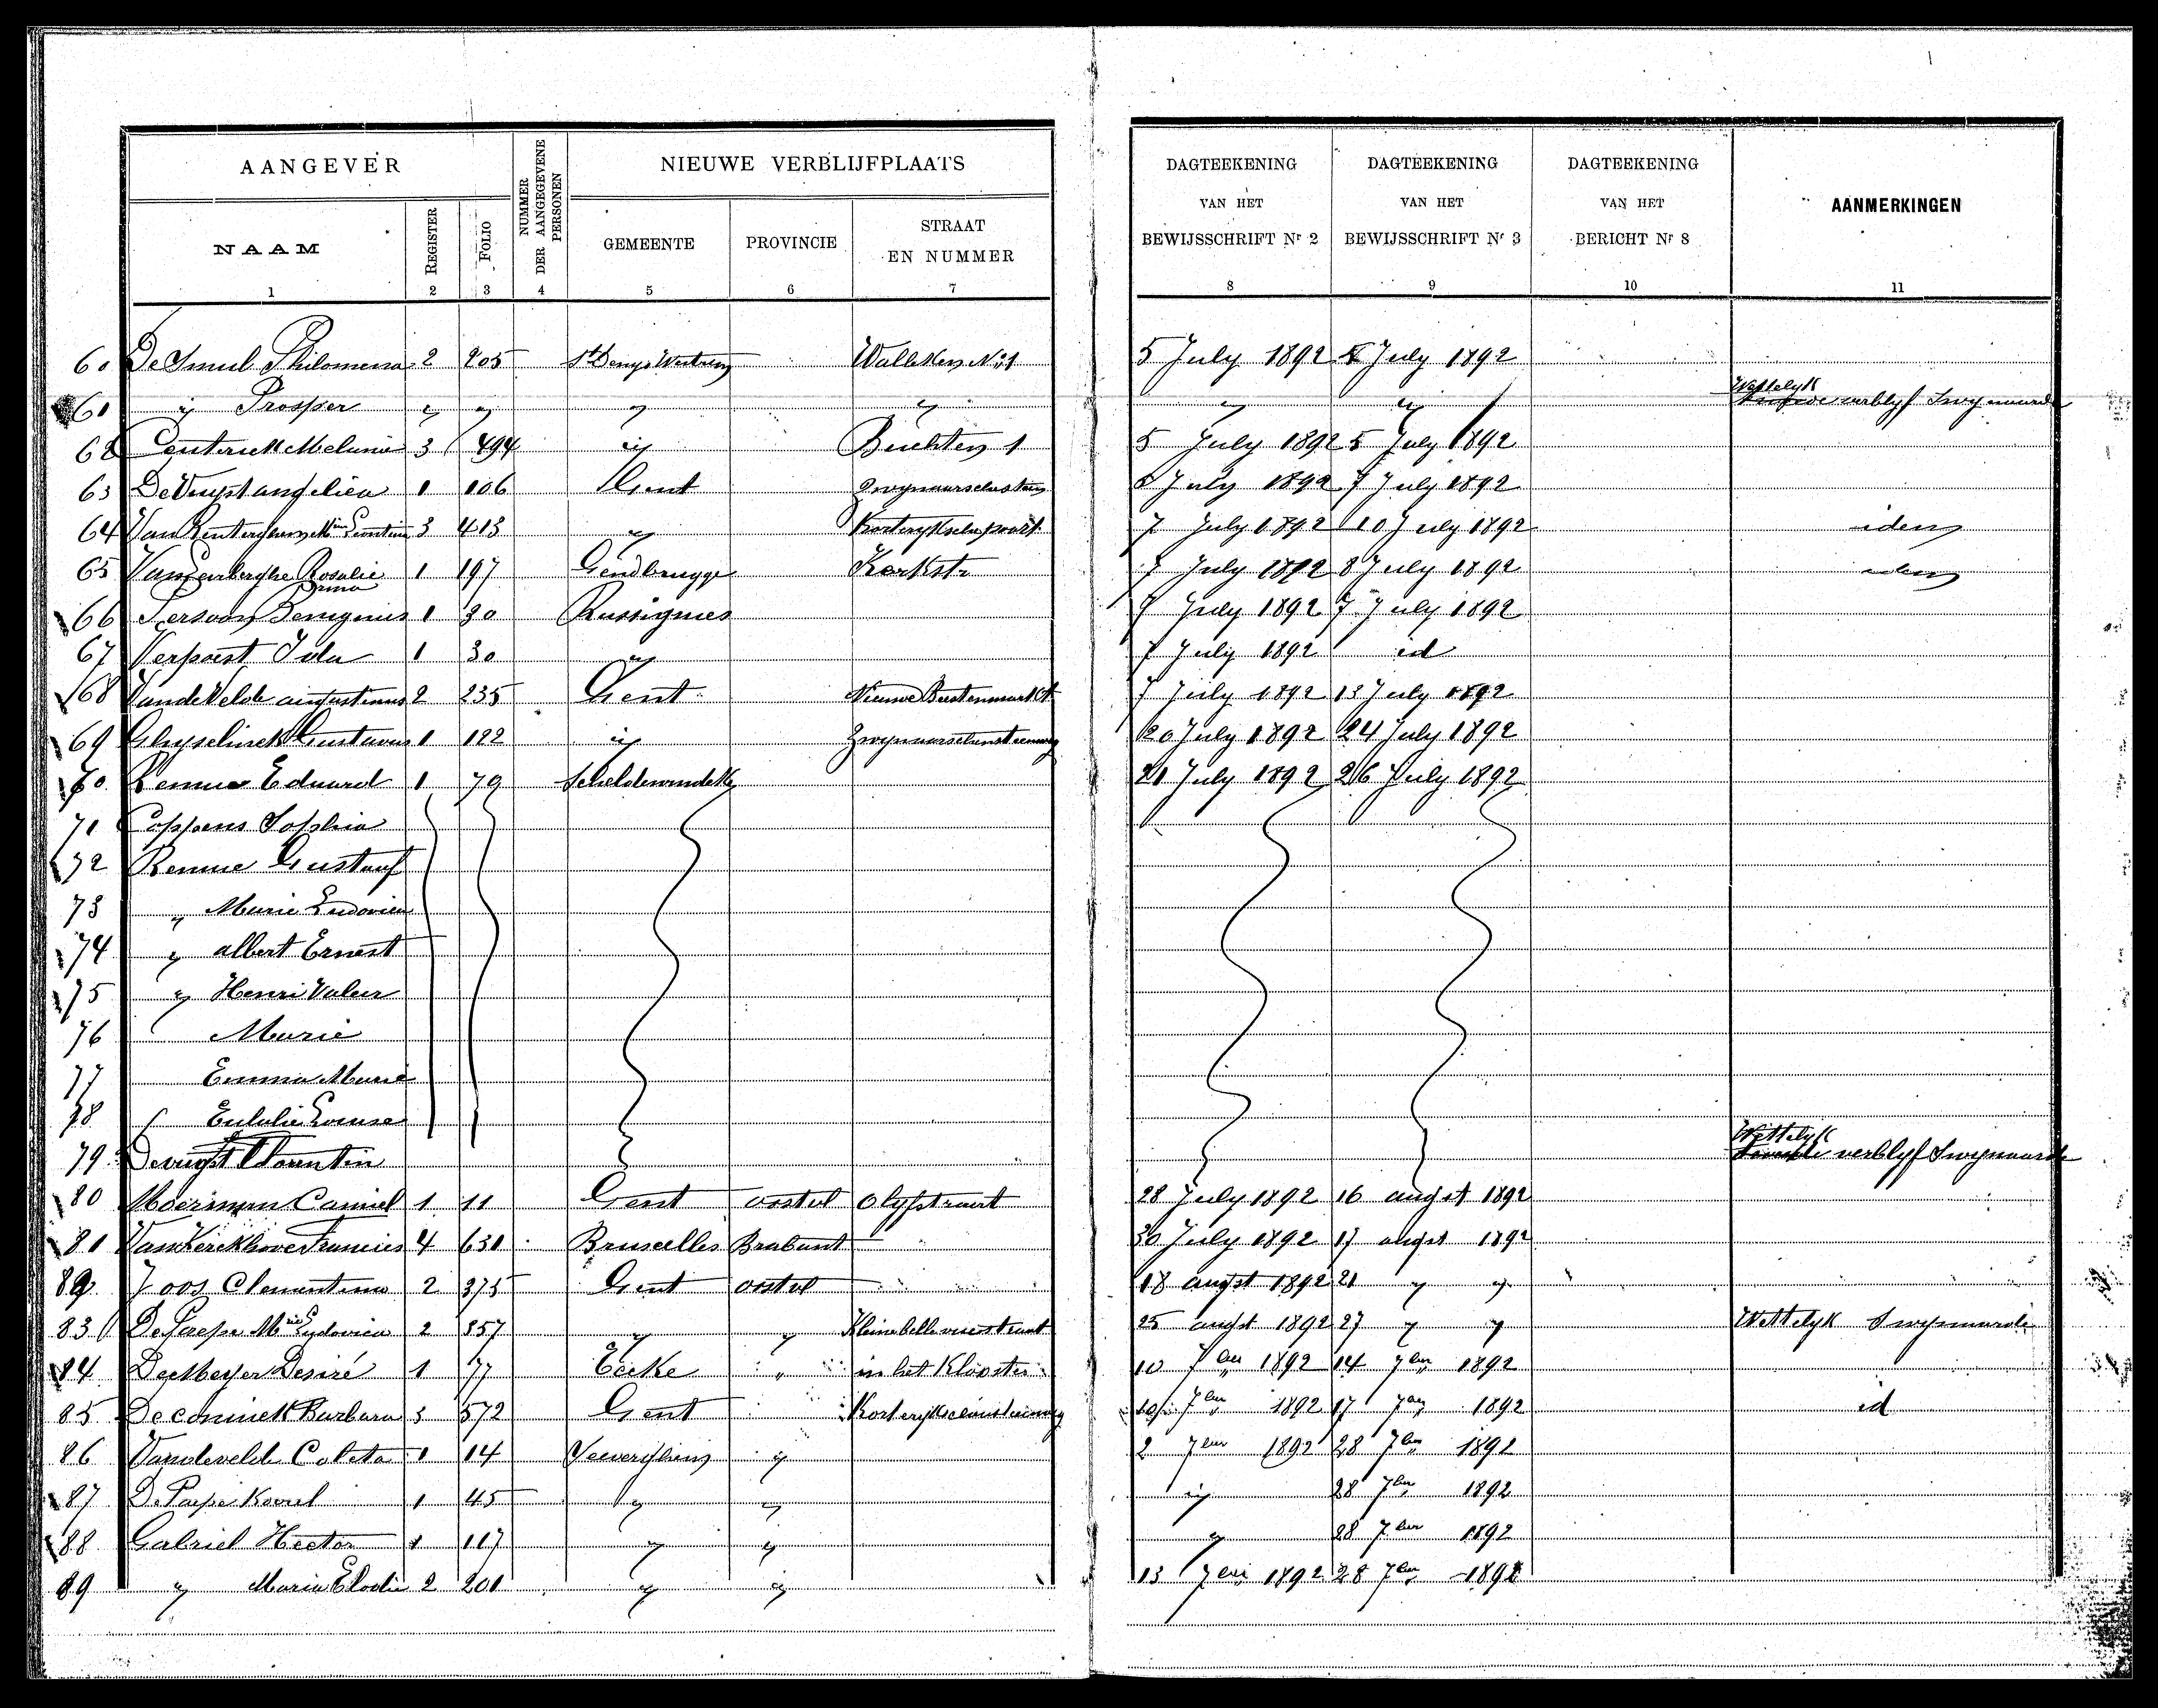 AANGEVER
NUMMER DER AANGEGEVENE PERSONEN
NIEUWE VERBLIJFPLAATS
DAGTEEKENING VAN HET BEWIJSSCHRIFT Nr 2
DAGTEEKENING VAN HET BEWIJSSCHRIFT Nr 3
DAGTEEKENING VAN HET BERICHT Nr 8
AANMERKINGEN
NAAM REGISTER FOLIO GEMEENTE PROVINCIE STRAAT EN NUMMER
1 2 3 4 5 6 7 8 9 10 11
60 De Smul Philomena 2 205 St Denys Westrem No 1 5 July 1892 July 1892
61 " Prosper " " " " " " Wettelyk verblyf Swynaarde
62 Melanie 3 494 " Buchten 1 5 July 1892 5 July 1892
63 De Vuyst angelica 1 106 Gent July 1892 7 July 1892
64 Van 3 413 " 7 July 1892 10 July 1892 idem
65 Rosalie 1 197 Gendbrugge Kerkstr 7 July 1892 8 July 1892 idem
66 Benignus 1 30 Russignies 7 July 1892 7 July 1892
67 Verpoest Ida 1 30 " 7 July 1892 id
68 VandeVelde augustinus 2 235 Gent Nieuwe Beestenmarkt 7 July 1892 13 July 1892
69 Ghyselinck Gustavus 1 122 " 20 July 1892 24 July 1892
70 Remue Eduard 1 79 Scheldewindeke 21 July 1892 26 July 1892
71 Coppens Sophia
72 Remue Gustaaf
73 " Marie Ludovica
74 " albert Ernest
75 " Henri Valeer
76 Marie
77 Emma Marie
78 Eulalie Louise
79 Devuyst Florentin Wettelyk verblyf Swynaarde
80 Moerman Camiel 1 11 Gent oostvl Olyfstraat 28 July 1892 16 augst 1892
81 VanKerckhove Francies 4 631 Bruxelles Brabant 30 July 1892 17 augst 1892
82 Joos Clementina 2 375 Gent oostvl 18 augst 1892 21 " "
83 DePaepe Mie Lydovica 2 357 " " Kleine bellevuestraat 25 augst 1892 27 " " Wettelyk Swynaarde
84 Desiré 1 77 Eecke " in het Klooster 10 7ber 1892 14 7ber 1892
85 Deconinck Barbara 3 572 Gent 7ber 1892 17 1892 id
86 Vandevelde Coleta 1 14 Zeeverghem " 2 7ber 1892 28 7ber 1892
87 De Paepe Karel 1 45 " " " 28 7ber 1892
88 Gabriel Hector 1 117 " " " 28 7ber 1892
89 " Maria Elodie 2 201 " " 13 7ber 1892 28 7ber 1892